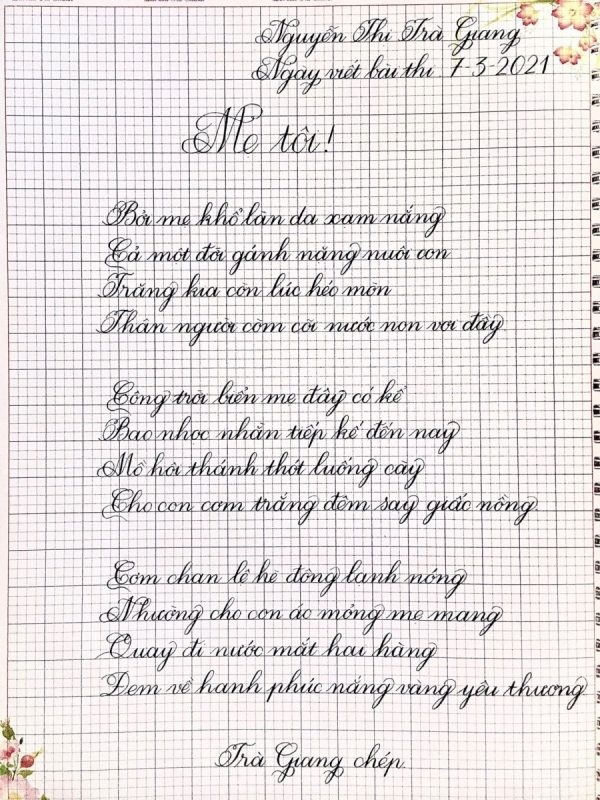 Nguyễn Thị Trà Giang
Ngày viết bài thi 7-3-2021
Mẹ tôi!
Bởi mẹ khổ làn da xạm nắng
Cả một đời gánh nặng nuôi con
Trăng kia còn lúc héo mòn
Thân người còm cõi nước non vơi đầy.
Công trời biển mẹ đây có kể
Bao nhọc nhằn tiếp kế đến nay
Mồ hôi thánh thót luống cày
Cho con cơm trắng đêm say giấc nồng.
Cơm chan lệ hè đông lạnh nóng
Nhường cho con áo mỏng mẹ mang
Quay đi nước mắt hai hàng
Đem về hạnh phúc nắng vàng yêu thương
Trà Giang chép.